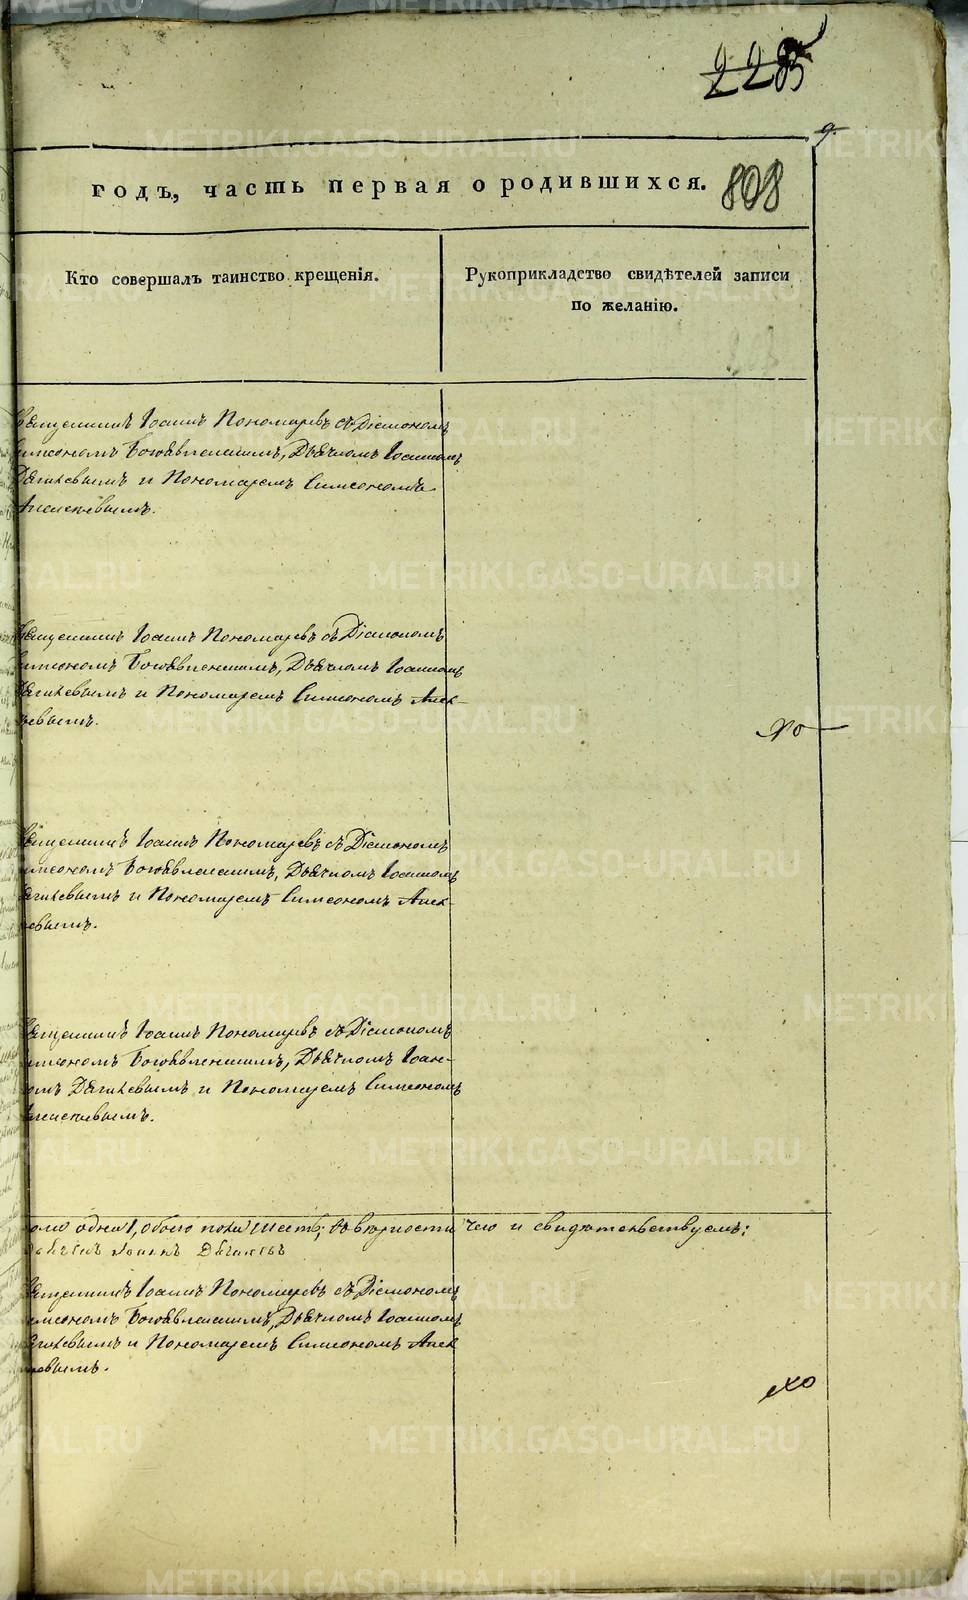 годъ, часть первая о родившихся. 808
Кто совершалъ таинство крещенія.
Рукоприкладство свидѣтелей записи
по желанію.
Священникъ Іоаннъ Пономаревъ съ Діакономъ
Симеономъ Богоявленскимъ, Дьячкомъ Іоанномъ
Дягилевымъ и Пономаремъ Симеономъ
Алексѣевымъ.
Священникъ Іоаннъ Пономаревъ съ Діакономъ
Симеономъ Богоявленскимъ, Дьячкомъ Іоанномъ
Дягилевымъ и Пономаремъ Симеономъ Алек-
сѣевымъ.
Священникъ Іоаннъ Пономаревъ съ Діакономъ
Симеономъ Богоявленскимъ, Дьячкомъ Іоанномъ
Дягилевымъ и Пономаремъ Симеономъ Алек-
сѣевымъ.
Священникъ Іоаннъ Пономаревъ съ Діакономъ
Симеономъ Богоявленскимъ, Дьячкомъ Іоан-
номъ Дягилевымъ и Пономаремъ Симеономъ
Алексѣевымъ.
одна 1, обоего пола шесть; въ вѣрности чего и свидѣтельствуемъ:
Іоаннъ Дягилевъ
Священникъ Іоаннъ Пономаревъ съ Діакономъ
Симеономъ Богоявленскимъ, Дьячкомъ Іоанномъ
Дягилевымъ и Пономаремъ Симеономъ Алек
сѣевымъ.
METRIKI.GASO-URAL.RU